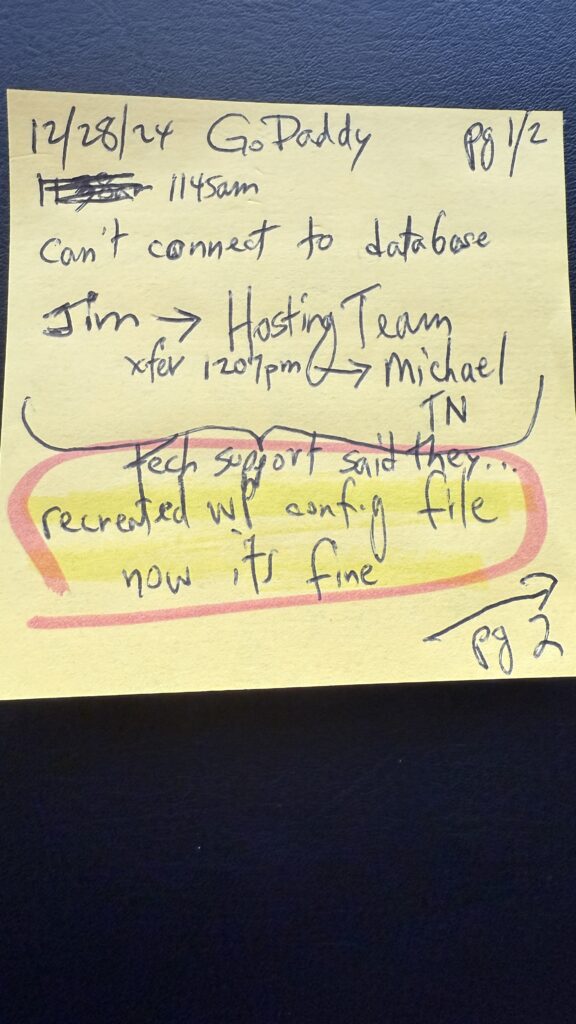 12/28/24 GoDaddy pg 1/2
1145am
can't connect to database
Jim → Hosting Team
xfer 1207pm → Michael
TN
tech support said they...
recreated wp config file
now it's fine
pg 2